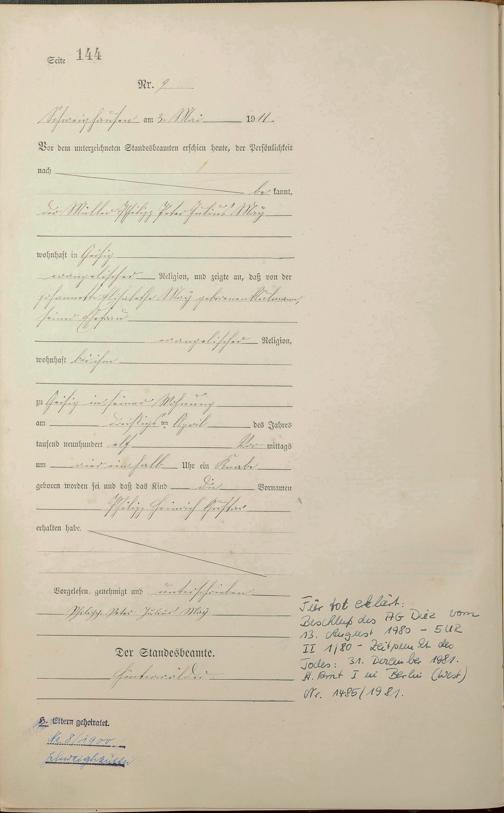 Seite 144
Nr. 9
Schweighausen am 3. Mai 1911.
Vor dem unterzeichneten Standesbeamten erschien heute, der Persönlichkeit
nach
bekannt,
der Müller Philipp Peter Julius May
wohnhaft in Geisig
evangelischer Religion, und zeigte an, daß von der
Elisabethe May geborenen
seiner Ehefrau
evangelischer Religion,
wohnhaft bei ihm
zu Geisig in seiner Wohnung
am dreißigsten April des Jahres
tausend neunhundert elf Vor mittags
um vier einhalb Uhr ein Knabe
geboren worden sei und daß das Kind die Vornamen
Philipp Heinrich Gustav
erhalten habe.
Vorgelesen, genehmigt und unterschrieben
Philipp Peter Julius May
Der Standesbeamte.
Für tot erklärt:
Beschluß des AG Diez vom
13. August 1980 - 5 UR
II 1/80 - Zeitpunkt des
Todes: 31. Dezember
St. Amt I in Berlin (West)
Nr. 1485/1981.
Eltern geheiratet.
Nr. 8/1900
Schweighausen